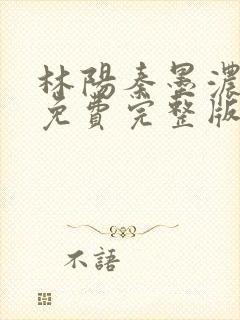 林陽秦墨濃
免費完整版
不語